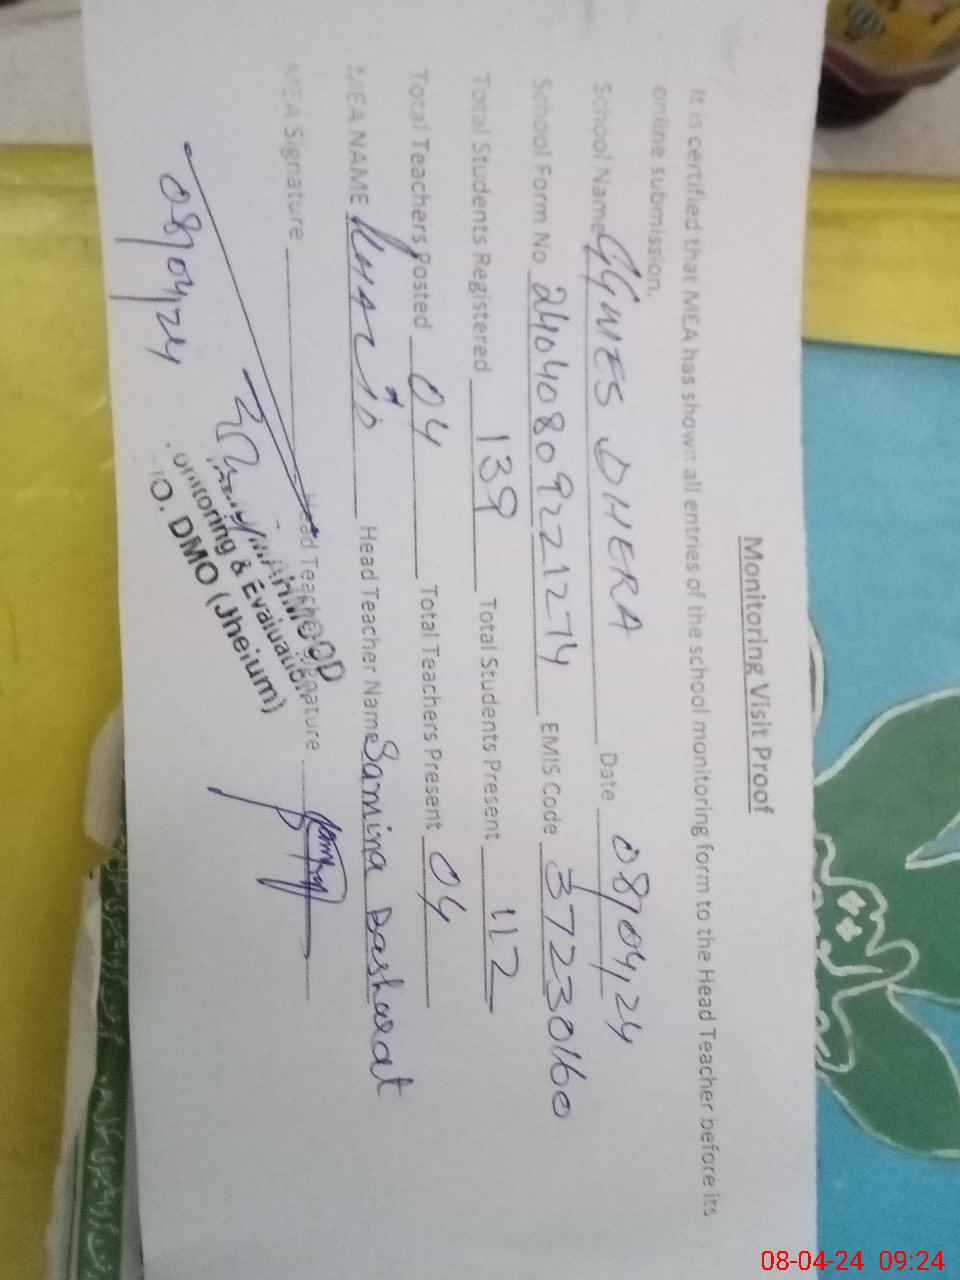 Monitoring Visit Proof
It is certified that MEA has shown all entries of the school monitoring form to the Head Teacher before its
online submission.
School Name GGMES DHERA Date 08/04/24
School Form No 24040809221274 EMIS Code 37230160
Total Students Registered 139 Total Students Present 112
Total Teachers Posted 04 Total Teachers Present 04
MEA NAME Head Teacher Name Samina Basharat
MEA Signature Head Teacher Signature
08/04/24
MAHMOOD
onitoring & Evaluation
O. DMO (Jhelum)
08-04-24 09:24